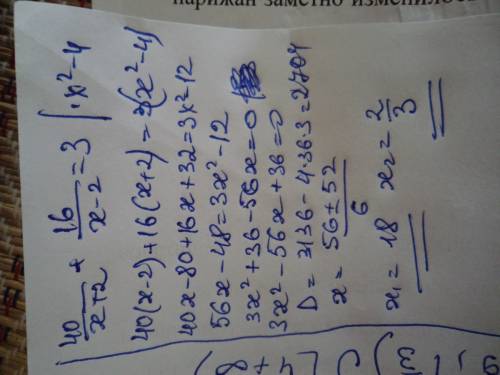 парижан заметно изменилось
40/(x+2) + 16/(x-2) = 3 | · x²-4
40(x-2)+16(x+2)=3(x²-4)
40x-80+16x+32=3x²-12
56x-48=3x²-12
3x²+36-56x=0
3x²-56x+36=0
D=3136-4·36·3=2704
x=(56±52)/6
x₁=18 x₂=2/3